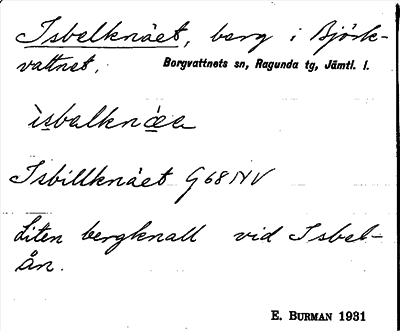 Isbelknäet, berg i Björk-
vattnet,
Borgvattnets sn, Ragunda tg, Jämtl. l.
Isbillknäet G68NV
Liten bergknall vid Isbel-
ån.
E. BURMAN 1931